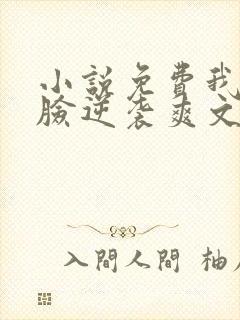 小説免費我
臉逆袭爽文
入間人間 柚